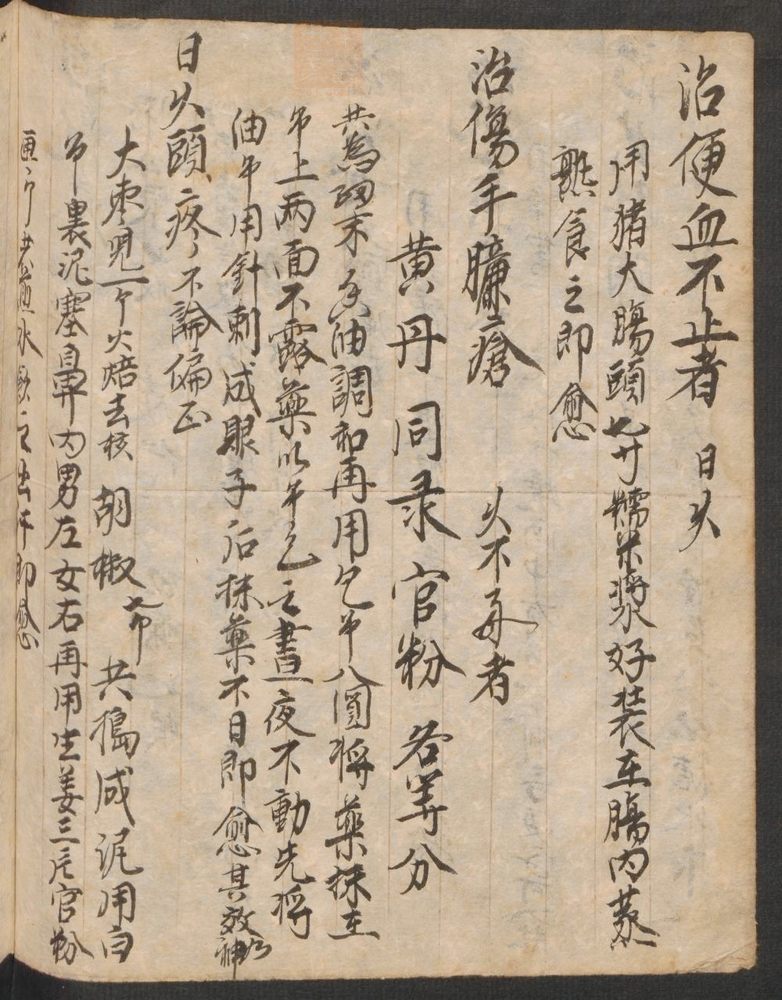 治便血不止者 日久
用猪大腸頭七寸糯米漿好装在腸内蒸
熟食之即愈
治傷手臁瘡 久不者
黄丹 同录 官粉 各等分
共為細末香油調和再用帋八圓将藥抹在
帋上两面不露藥以帋之晝夜不動先将
油帋用針刺成眼子后抹藥不日即愈其效神
日久頭疼不論偏正
大枣兒一个火焙去核 胡椒 共搗成泥用白
帋裹泥塞鼻内男左女右再用生姜三片官粉
共煎水飲之出汗即愈